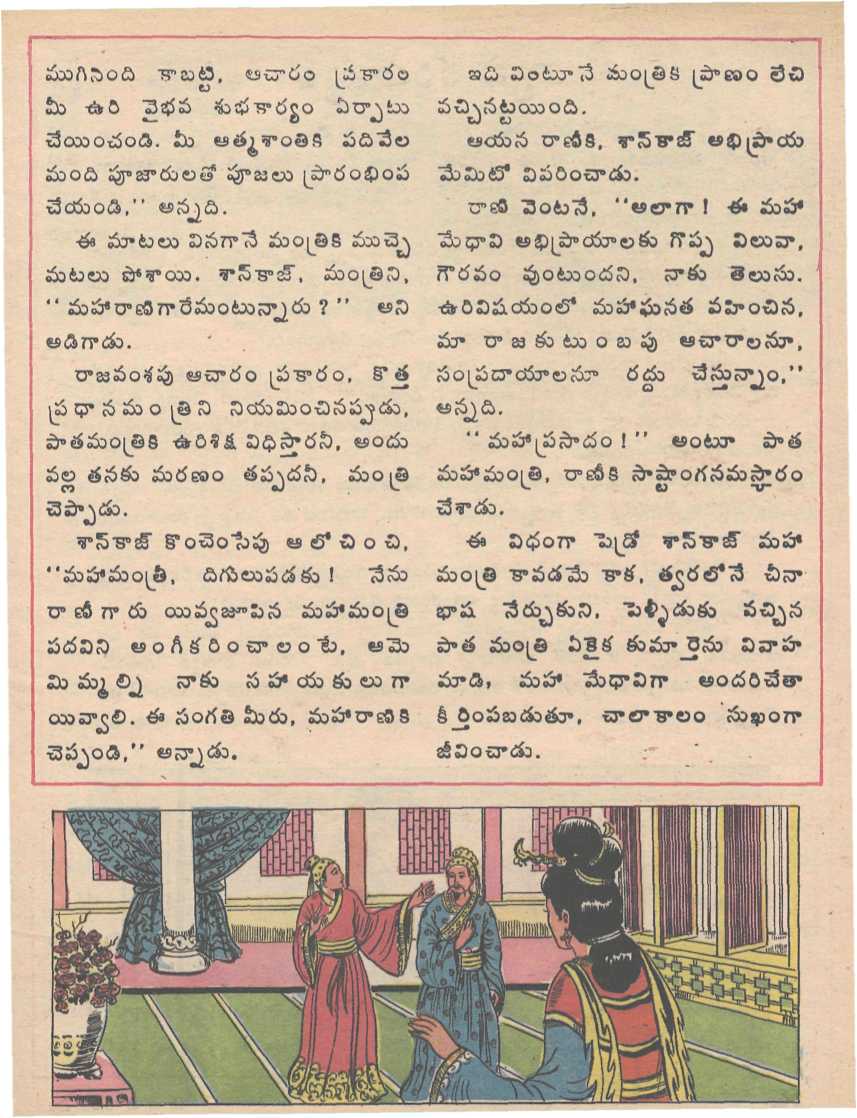 ముగిసింది కాబట్టి, ఆచారం ప్రకారం
మీ ఉరి వైభవ శుభకార్యం ఏర్పాటు
చేయించండి. మీ ఆత్మశాంతికి పదివేల
మంది పూజారులతో పూజలు ప్రారంభింప
చేయండి,'' అన్నది.
ఈ మాటలు వినగానే మంత్రికి ముచ్చె
మటలు పోశాయి. శాన్‌కాజ్, మంత్రిని,
''మహారాణిగారేమంటున్నారు?'' అని
అడిగాడు.
రాజవంశపు ఆచారం ప్రకారం, కొత్త
ప్రధానమంత్రిని నియమించినప్పుడు,
పాతమంత్రికి ఉరిశిక్ష విధిస్తారనీ, అందు
వల్ల తనకు మరణం తప్పదనీ, మంత్రి
చెప్పాడు.
శాన్‌కాజ్ కొంచెంసేపు ఆలోచించి,
''మహామంత్రీ, దిగులుపడకు! నేను
రాణీగారు యివ్వజూపిన మహామంత్రి
పదవిని అంగీకరించాలంటే, ఆమె
మిమ్మల్ని నాకు సహాయకులుగా
యివ్వాలి. ఈ సంగతి మీరు, మహారాణికి
చెప్పండి,'' అన్నాడు.
ఇది వింటూనే మంత్రికి ప్రాణం లేచి
వచ్చినట్టయింది.
ఆయన రాణీకి, శాన్‌కాజ్ అభిప్రాయ
మేమిటో వివరించాడు.
రాణి వెంటనే, ''అలాగా! ఈ మహా
మేధావి అభిప్రాయాలకు గొప్ప విలువా,
గౌరవం వుంటుందని, నాకు తెలుసు.
ఉరివిషయంలో మహాఘనత వహించిన,
మా రాజకుటుంబపు ఆచారాలనూ,
సంప్రదాయాలనూ రద్దు చేస్తున్నాం,''
అన్నది.
''మహాప్రసాదం!'' అంటూ పాత
మహామంత్రి, రాణీకి సాష్టాంగనమస్కారం
చేశాడు.
ఈ విధంగా పెడ్రో శాన్‌కాజ్ మహా
మంత్రి కావడమే కాక, త్వరలోనే చీనా
భాష నేర్చుకుని, పెళ్ళీడుకు వచ్చిన
పాత మంత్రి ఏకైక కుమార్తెను వివాహ
మాడి, మహా మేధావిగా అందరిచేతా
కీర్తింపబడుతూ, చాలాకాలం సుఖంగా
జీవించాడు.